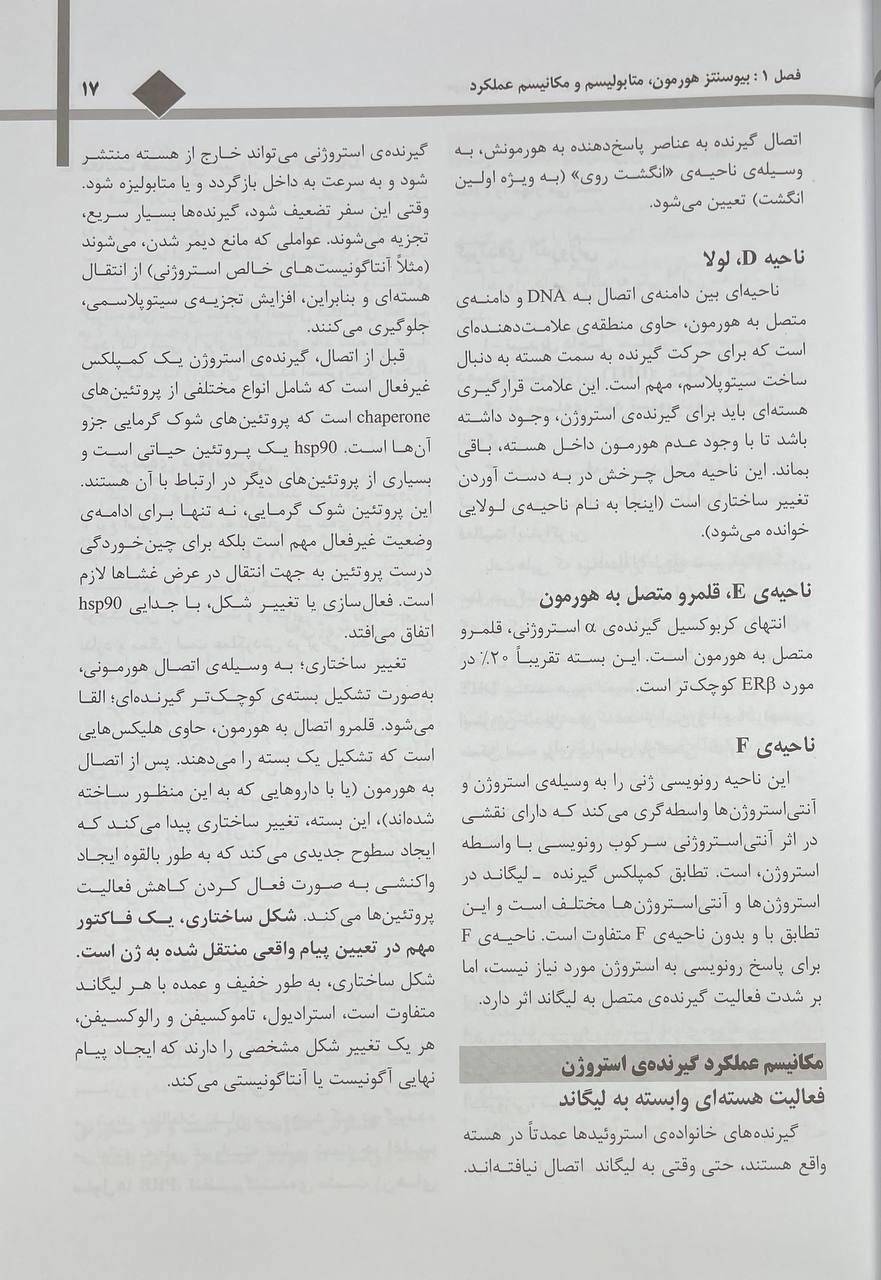 فصل ۱ : بیوسنتز هورمون، متابولیسم و مکانیسم عملکرد
۱۷
اتصال گیرنده به عناصر پاسخ‌دهنده به هورمونش، به
وسیله‌ی ناحیه‌ی «انگشت روی» (به ویژه اولین
انگشت) تعیین می‌شود.
ناحیه D، لولا
ناحیه‌ای بین دامنه‌ی اتصال به DNA و دامنه‌ی
متصل به هورمون، حاوی منطقه‌ی علامت‌دهنده‌ای
است که برای حرکت گیرنده به سمت هسته به دنبال
ساخت سیتوپلاسم، مهم است. این علامت قرارگیری
هسته‌ای باید برای گیرنده‌ی استروژن، وجود داشته
باشد تا با وجود عدم هورمون داخل هسته، باقی
بماند. این ناحیه محل چرخش در به دست آوردن
تغییر ساختاری است (اینجا به نام ناحیه‌ی لولایی
خوانده می‌شود).
ناحیه‌ی E، قلمرو متصل به هورمون
انتهای کربوکسیل گیرنده‌ی α استروژنی، قلمرو
متصل به هورمون است. این بسته تقریباً ۲۰٪ در
مورد ERβ کوچک‌تر است.
ناحیه‌ی F
این ناحیه رونویسی ژنی را به وسیله‌ی استروژن و
آنتی‌استروژن‌ها واسطه‌گری می‌کند که دارای نقشی
در اثر آنتی‌استروژنی سرکوب رونویسی با واسطه
استروژن، است. تطابق کمپلکس گیرنده ـ لیگاند در
استروژن‌ها و آنتی‌استروژن‌ها مختلف است و این
تطابق با و بدون ناحیه‌ی F متفاوت است. ناحیه‌ی F
برای پاسخ رونویسی به استروژن مورد نیاز نیست، اما
بر شدت فعالیت گیرنده‌ی متصل به لیگاند اثر دارد.
مکانیسم عملکرد گیرنده‌ی استروژن
فعالیت هسته‌ای وابسته به لیگاند
گیرنده‌های خانواده‌ی استروئیدها عمدتاً در هسته
واقع هستند، حتی وقتی به لیگاند اتصال نیافته‌اند.
گیرنده‌ی استروژنی می‌تواند خارج از هسته منتشر
شود و به سرعت به داخل بازگردد و یا متابولیزه شود.
وقتی این سفر تضعیف شود، گیرنده‌ها بسیار سریع،
تجزیه می‌شوند. عواملی که مانع دیمر شدن، می‌شوند
(مثلاً آنتاگونیست‌های خالص استروژنی) از انتقال
هسته‌ای و بنابراین، افزایش تجزیه‌ی سیتوپلاسمی،
جلوگیری می‌کنند.
قبل از اتصال، گیرنده‌ی استروژن یک کمپلکس
غیرفعال است که شامل انواع مختلفی از پروتئین‌های
chaperone است که پروتئین‌های شوک گرمایی جزو
آن‌ها است. hsp90 یک پروتئین حیاتی است و
بسیاری از پروتئین‌های دیگر در ارتباط با آن هستند.
این پروتئین شوک گرمایی، نه تنها برای ادامه‌ی
وضعیت غیرفعال مهم است بلکه برای چین‌خوردگی
درست پروتئین به جهت انتقال در عرض غشاها لازم
است. فعال‌سازی یا تغییر شکل، با جدایی hsp90
اتفاق می‌افتد.
تغییر ساختاری؛ به وسیله‌ی اتصال هورمونی،
به‌صورت تشکیل بسته‌ی کوچک‌تر گیرنده‌ای؛ القا
می‌شود. قلمرو اتصال به هورمون، حاوی هلیکس‌هایی
است که تشکیل یک بسته را می‌دهند. پس از اتصال
به هورمون (یا با داروهایی که به این منظور ساخته
شده‌اند)، این بسته، تغییر ساختاری پیدا می‌کند که
ایجاد سطوح جدیدی می‌کند که به طور بالقوه ایجاد
واکنشی به صورت فعال کردن کاهش فعالیت
پروتئین‌ها می‌کند. شکل ساختاری، یک فاکتور
مهم در تعیین پیام واقعی منتقل شده به ژن است.
شکل ساختاری، به طور خفیف و عمده با هر لیگاند
متفاوت است، استرادیول، تاموکسیفن و رالوکسیفن،
هر یک تغییر شکل مشخصی را دارند که ایجاد پیام
نهایی آگونیست یا آنتاگونیستی می‌کند.